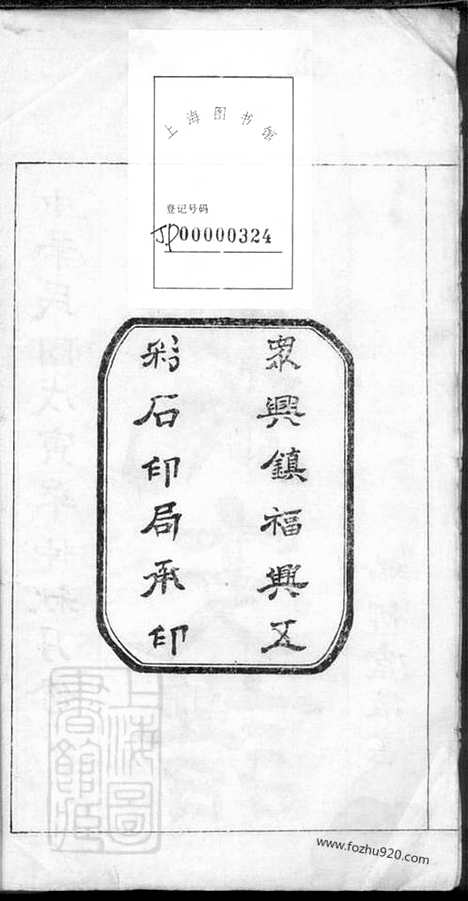 上海图书馆
登记号码
JP00000324
眾興鎮福興五
彩石印局承印
上海圖
書館
www.fozhu920.com